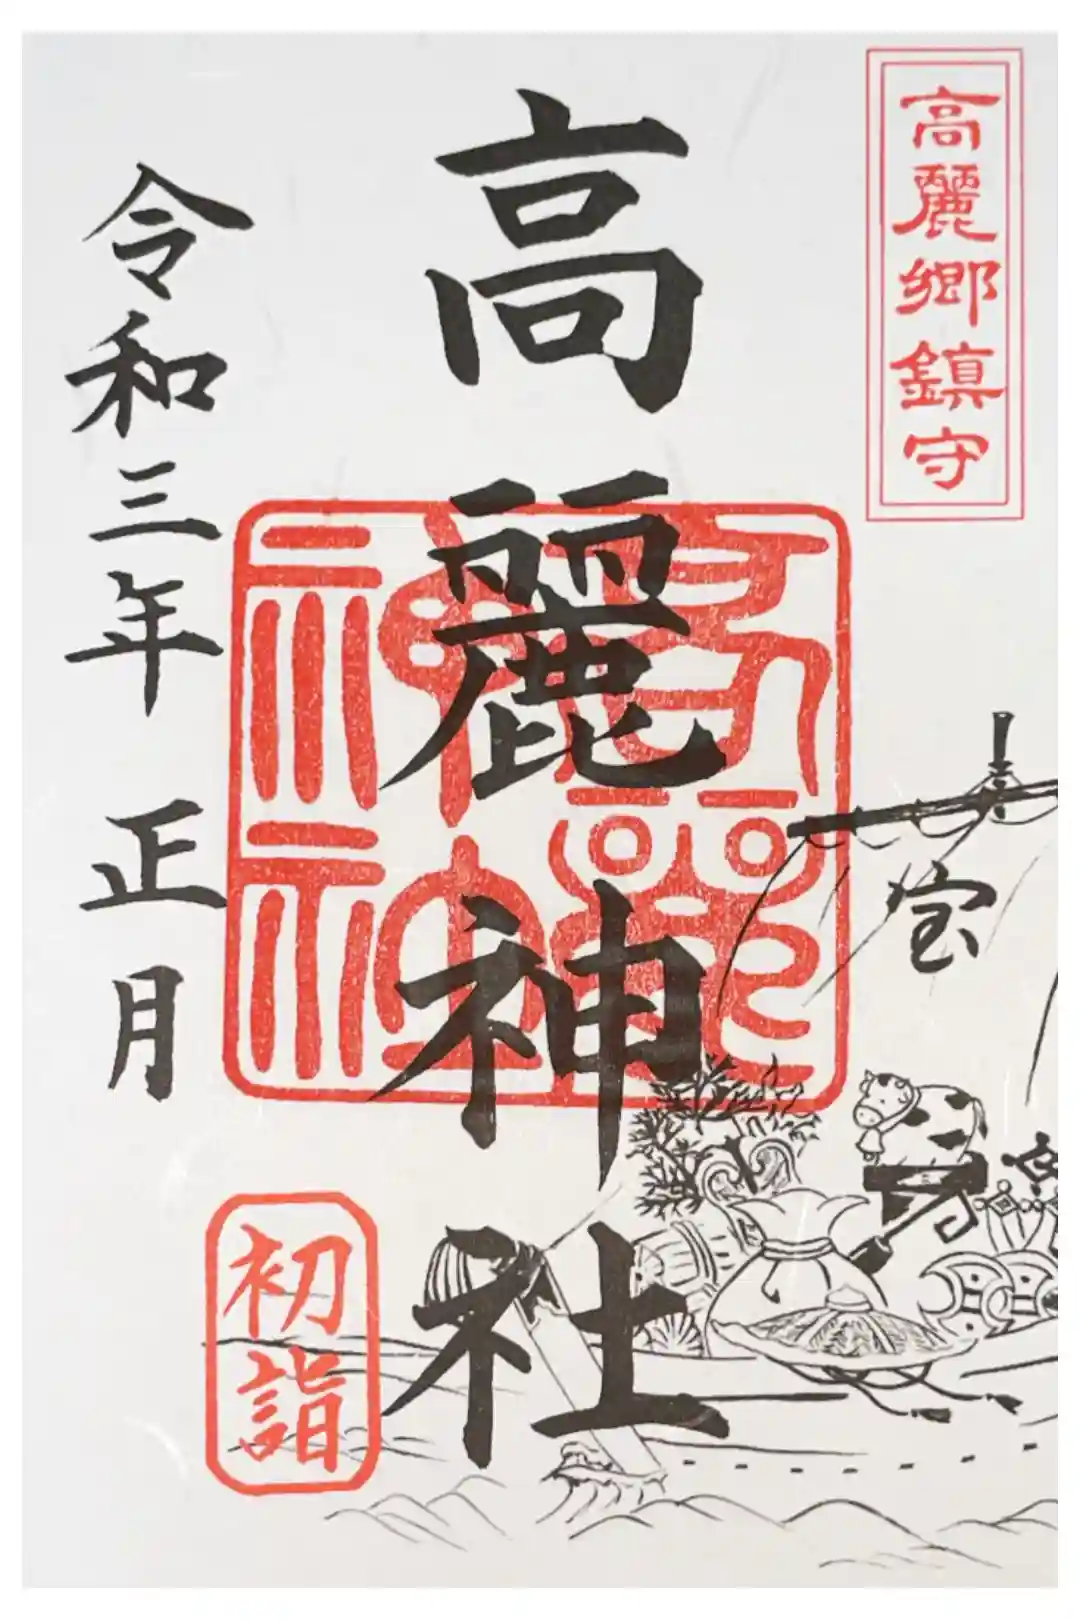 高麗郷鎮守
宝
高麗神社
高麗神社
令和三年 正月
初詣